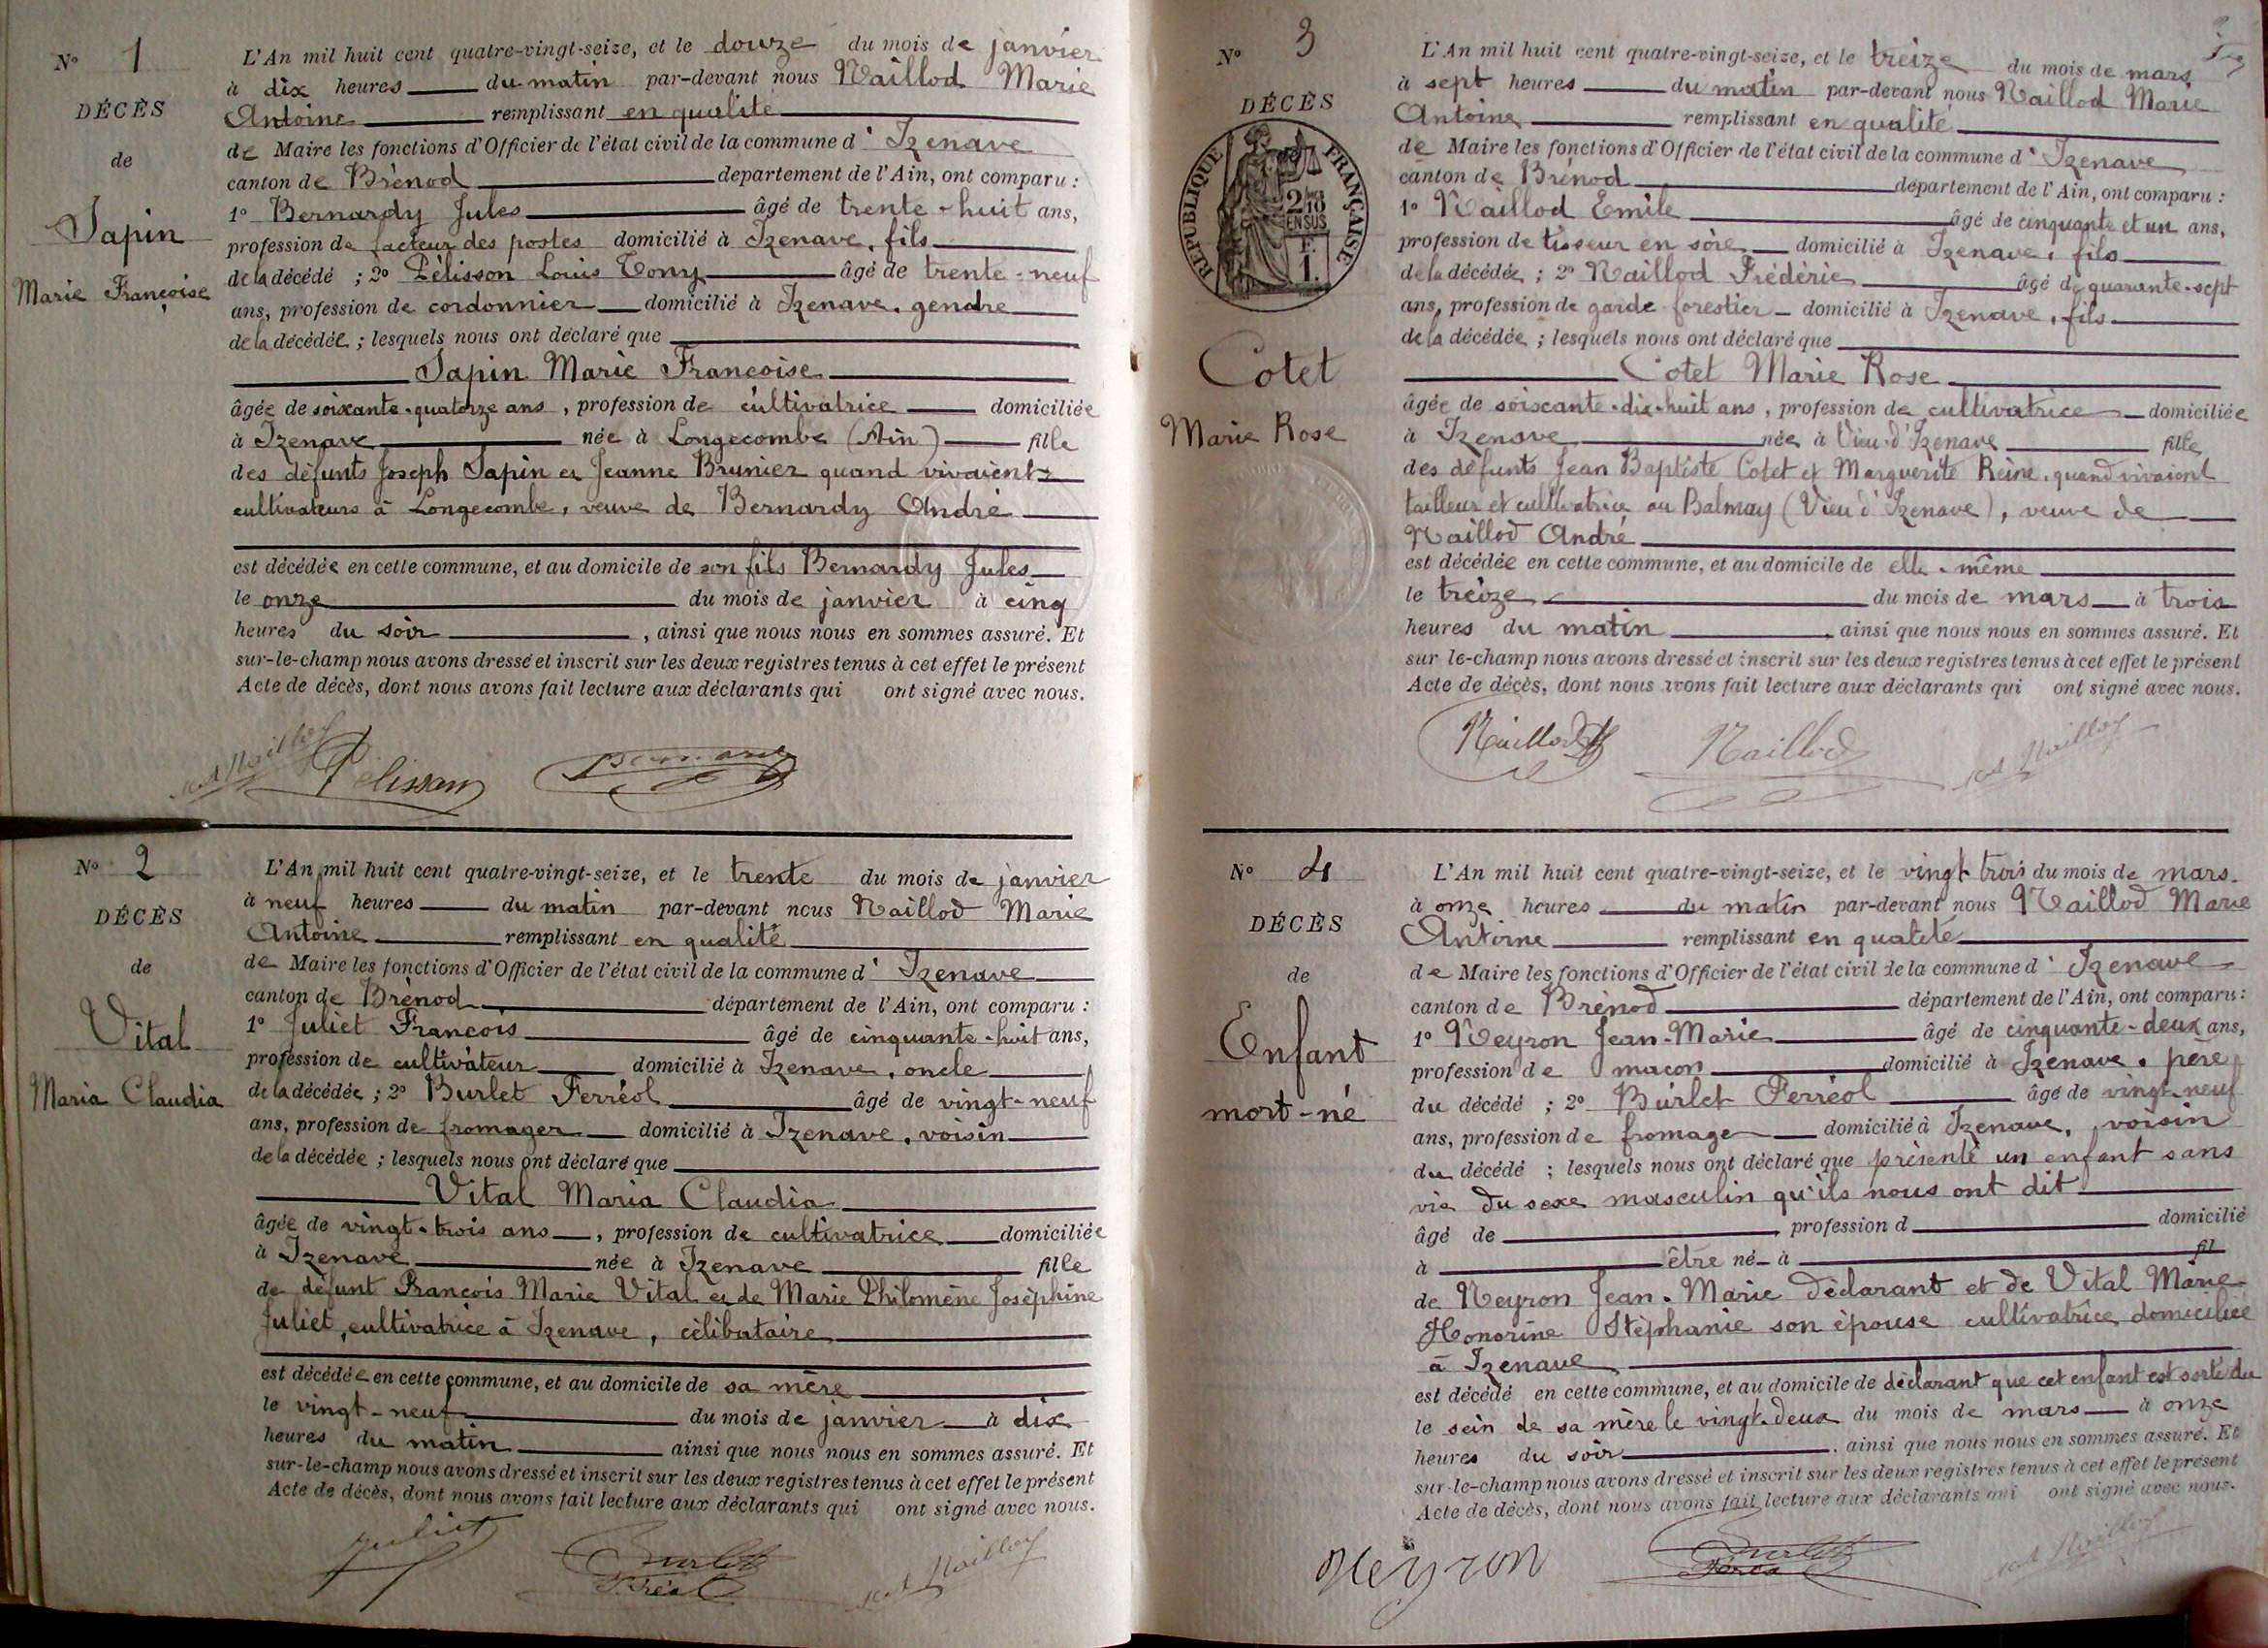 N° 1
DÉCÈS
de
Sapin
Marie Françoise
L'An mil huit cent quatre-vingt-seize, et le douze du mois de janvier
à dix heures du matin par-devant nous Naillod Marie
Antoine remplissant en qualité
de Maire les fonctions d'Officier de l'état civil de la commune d' Izenave
canton de Brénod departement de l'Ain, ont comparu :
1° Bernardy Jules âgé de trente-huit ans,
profession de facteur des postes domicilié à Izenave, fils
de la décédé ; 2° Pélisson Louis Tony âgé de trente-neuf
ans, profession de cordonnier domicilié à Izenave, gendre
de la décédée ; lesquels nous ont déclaré que
Sapin Marie Françoise
âgée de soixante-quatorze ans, profession de cultivatrice domiciliée
à Izenave née à Longecombe (Ain) fille
des défunts Joseph Sapin et Jeanne Brunier quand vivaient
cultivateurs à Longecombe, veuve de Bernardy André
est décédée en cette commune, et au domicile de son fils Bernardy Jules
le onze du mois de janvier à cinq
heures du soir, ainsi que nous nous en sommes assuré. Et
sur-le-champ nous avons dressé et inscrit sur les deux registres tenus à cet effet le présent
Acte de décès, dont nous avons fait lecture aux déclarants qui ont signé avec nous.
Naillod Pélisson Bernardy
N° 2
DÉCÈS
de
Vital
Maria Claudia
L'An mil huit cent quatre-vingt-seize, et le trente du mois de janvier
à neuf heures du matin par-devant nous Naillod Marie
Antoine remplissant en qualité
de Maire les fonctions d'Officier de l'état civil de la commune d' Izenave
canton de Brénod département de l'Ain, ont comparu :
1° Juliet François âgé de cinquante-huit ans,
profession de cultivateur domicilié à Izenave, oncle
de la décédée ; 2° Burlet Ferréol âgé de vingt-neuf
ans, profession de fromager domicilié à Izenave, voisin
de la décédée ; lesquels nous ont déclaré que
Vital Maria Claudia
âgée de vingt-trois ans, profession de cultivatrice domiciliée
à Izenave née à Izenave fille
de défunt François Marie Vital et de Marie Philomène Joséphine
Juliet, cultivatrice à Izenave, célibataire
est décédée en cette commune, et au domicile de sa mère
le vingt-neuf du mois de janvier à dix
heures du matin ainsi que nous nous en sommes assuré. Et
sur-le-champ nous avons dressé et inscrit sur les deux registres tenus à cet effet le présent
Acte de décès, dont nous avons fait lecture aux déclarants qui ont signé avec nous.
Juliet Burlet Naillod
Ferréol
N° 3
DÉCÈS
RÉPUBLIQUE FRANÇAISE
2/10
EN SUS
F.
1.
Cotet
Marie Rose
L'An mil huit cent quatre-vingt-seize, et le treize du mois de mars
à sept heures du matin par-devant nous Naillod Marie
Antoine remplissant en qualité
de Maire les fonctions d'Officier de l'état civil de la commune d' Izenave
canton de Brénod département de l'Ain, ont comparu :
1° Naillod Emile âgé de cinquante et un ans,
profession de tisseur en soie domicilié à Izenave, fils
de la décédée ; 2° Naillod Frédéric âgé de quarante-sept
ans, profession de garde forestier domicilié à Izenave, fils
de la décédée ; lesquels nous ont déclaré que
Cotet Marie Rose
âgée de soiscante-dix-huit ans, profession de cultivatrice domiciliée
à Izenave née à Vieu-d'Izenave fille
des défunts Jean Baptiste Cotet et Marguerite Reine, quand vivaient
tailleur et cultivatrice au Balmay (Vieu d'Izenave), veuve de
Naillod André
est décédée en cette commune, et au domicile de elle-même
le treize du mois de mars à trois
heures du matin ainsi que nous nous en sommes assuré. Et
sur le-champ nous avons dressé et inscrit sur les deux registres tenus à cet effet le présent
Acte de décès, dont nous avons fait lecture aux déclarants qui ont signé avec nous.
Naillod Naillod Naillod
N° 4
DÉCÈS
de
Enfant
mort-né
L'An mil huit cent quatre-vingt-seize, et le vingt-trois du mois de mars
à onze heures du matin par-devant nous Naillod Marie
Antoine remplissant en qualité
de Maire les fonctions d'Officier de l'état civil de la commune d' Izenave
canton de Brénod département de l'Ain, ont comparu :
1° Neyron Jean-Marie âgé de cinquante-deux ans,
profession de maçon domicilié à Izenave, père
du décédé ; 2° Burlet Ferréol âgé de vingt-neuf
ans, profession de fromager domicilié à Izenave, voisin
du décédé ; lesquels nous ont déclaré que présenté un enfant sans
vie du sexe masculin qu'ils nous ont dit
âgé de profession d domicilié
à être né à fil
de Neyron Jean-Marie déclarant et de Vital Marie
Honorine Stéphanie son épouse cultivatrice domiciliée
à Izenave
est décédé en cette commune, et au domicile de déclarant que cet enfant est sorti du
le sein de sa mère le vingt-deux du mois de mars à onze
heures du soir, ainsi que nous nous en sommes assuré. Et
sur-le-champ nous avons dressé et inscrit sur les deux registres tenus à cet effet le présent
Acte de décès, dont nous avons fait lecture aux déclarants qui ont signé avec nous.
Neyron Burlet Naillod